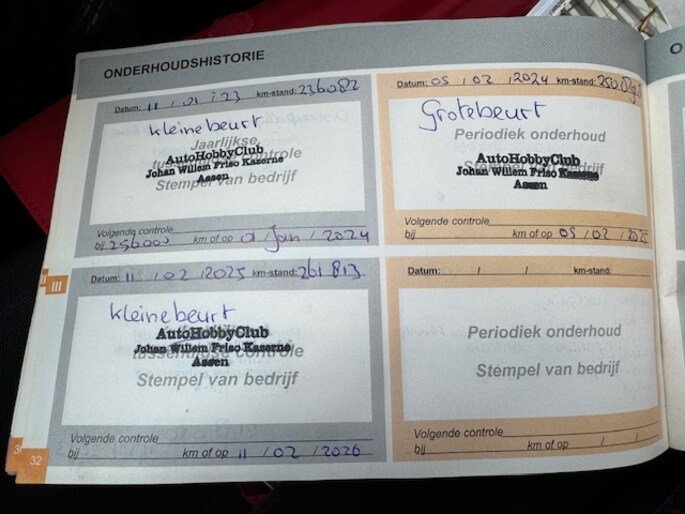 ONDERHOUDSHISTORIE
Datum: 11 / 01 / 23 km-stand: 236082
kleine beurt
Jaarlijkse,
tussentijdse controle
AutoHobbyClub
Johan Willem Friso Kazerne
Assen
Stempel van bedrijf
Volgende controle
bij 256000 km of op 01 / Jan / 2024
Datum: 05 / 02 / 2024 km-stand:
Grote beurt
Periodiek onderhoud
AutoHobbyClub
Johan Willem Friso Kazerne
Assen
Stempel van bedrijf
Volgende controle
bij km of op 05 / 02 / 2025
III
Datum: 11 / 02 / 2025 km-stand: 261813
kleine beurt
AutoHobbyClub
Johan Willem Friso Kazerne
tussentijdse controle
Assen
Stempel van bedrijf
Volgende controle
bij km of op 11 / 02 / 2026
Datum: / / km-stand:
Periodiek onderhoud
Stempel van bedrijf
Volgende controle
bij km of op / /
32